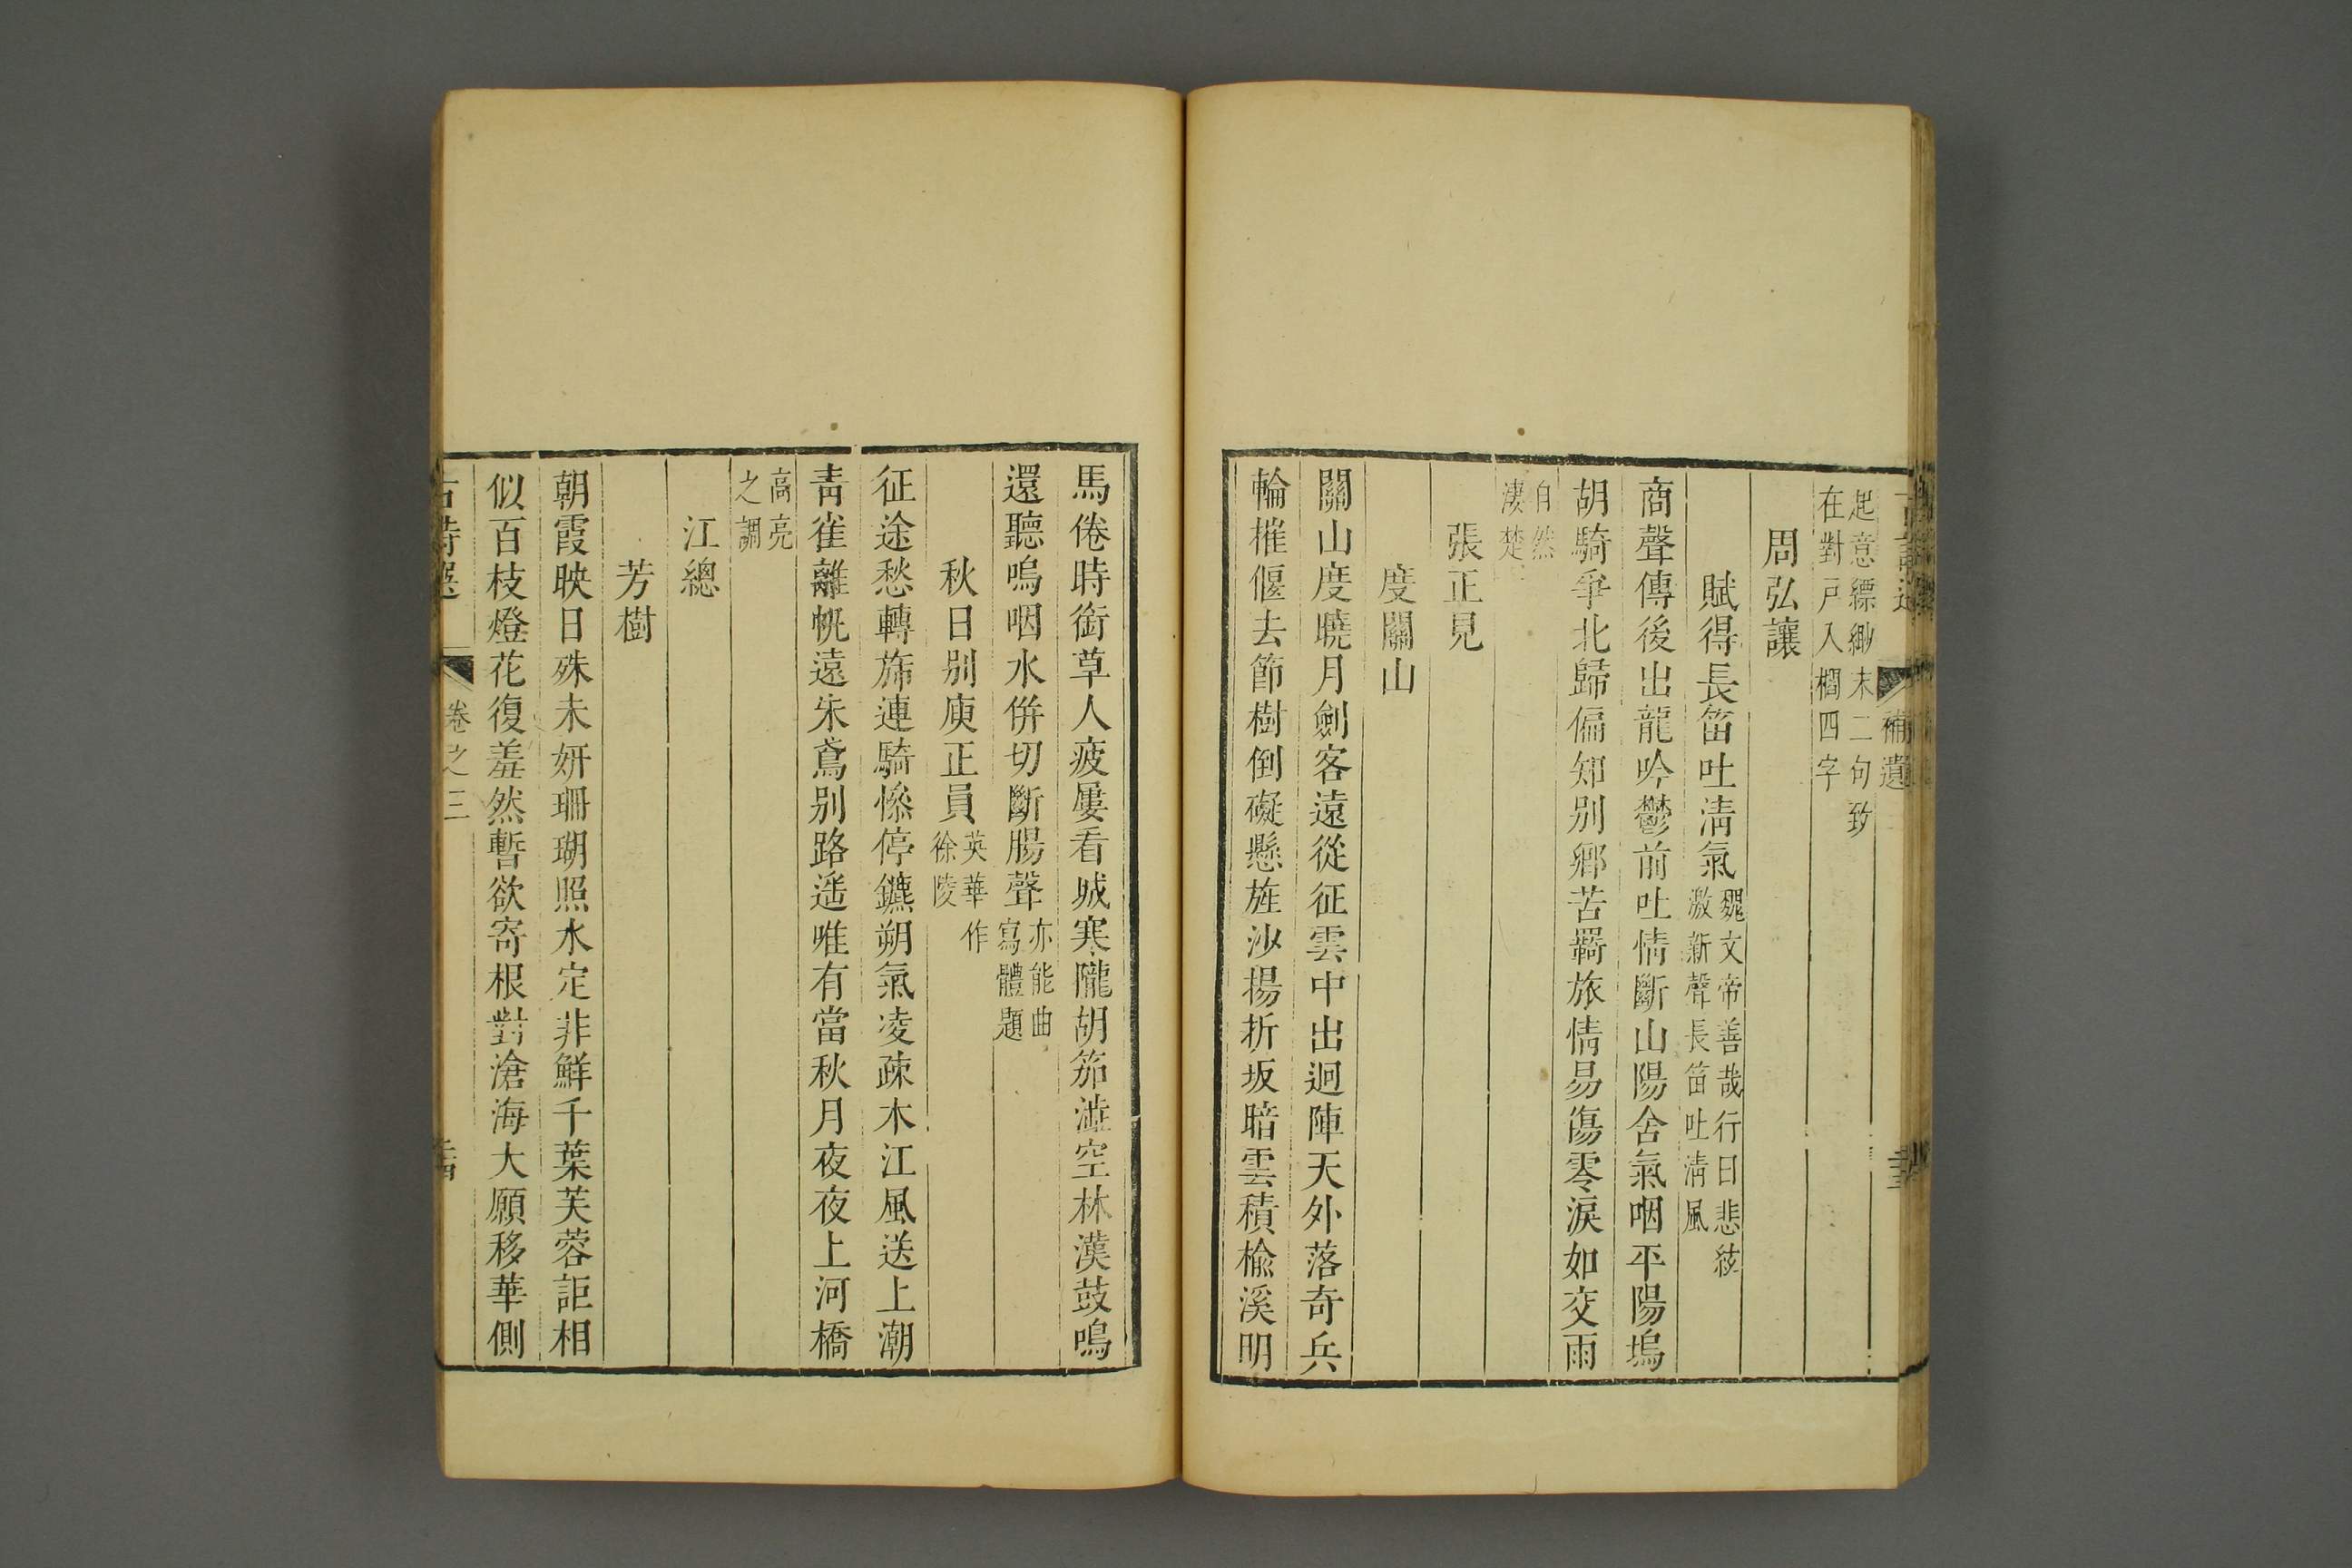 補遺
起意縹緲末二句致
在對戸入櫩四字
周弘讓
賦得長笛吐淸氣
魏文帝善哉行曰悲絃
激新聲長笛吐淸風
商聲傳後出龍吟鬱前吐情斷山陽舍氣咽平陽塢
胡騎爭北歸偏知別鄉苦羇旅情易傷零淚如交雨
自然
淒楚
張正見
度關山
關山度曉月劍客遠從征雲中出迥陣天外落奇兵
輪摧偃去節樹倒礙懸旌沙揚折坂暗雲積楡溪明
馬倦時銜草人疲屢看城寒隴胡笳澁空林漢鼓鳴
還聽嗚咽水併切斷腸聲
亦能曲
寫體題
秋日別庾正員
英華作
徐陵
征途愁轉旆連騎慘停鑣朔氣凌疎木江風送上潮
靑雀離帆遠朱鳶別路遙唯有當秋月夜夜上河橋
高亮
之調
江總
芳樹
朝霞映日殊未妍珊瑚照水定非鮮千葉芙蓉詎相
似百枝燈花復羞然暫欲寄根對滄海大願移華側
古詩選
卷之三